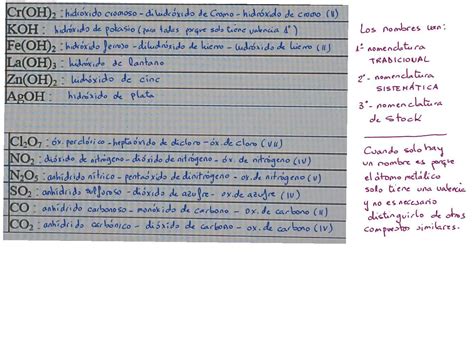 Cr(OH)₂ : hidróxido cromoso - dihidróxido de Cromo - hidróxido de cromo (II)
KOH : hidróxido de potasio (para todas porque solo tiene valencia 1⁺)
Fe(OH)₂ : hidróxido ferroso - dihidróxido de hierro - hidróxido de hierro (II)
La(OH)₃ : hidróxido de lantano
Zn(OH)₂ : hidróxido de cinc
AgOH : hidróxido de plata
Cl₂O₇ : óx. perclórico - heptaóxido de dicloro - óx. de cloro (VII)
NO₂ : dióxido de nitrógeno - dióxido de nitrógeno - óx. de nitrógeno (IV)
N₂O₅ : anhídrido nítrico - pentaóxido de dinitrógeno - ox. de nitrógeno (V)
SO₂ : anhídrido sulfuroso - dióxido de azufre - ox. de azufre (IV)
CO : anhídrido carbonoso - monóxido de carbono - ox. de carbono (II)
CO₂ : anhídrido carbónico - dióxido de carbono - ox. de carbono (IV)
Los nombres van:
1º nomenclatura
TRADICIONAL
2º - nomenclatura
SISTEMÁTICA
3º - nomenclatura
de Stock
Cuando solo hay
un nombre es porque
el átomo metálico
solo tiene una valencia
y no es necesario
distinguirlo de otros
compuestos similares.